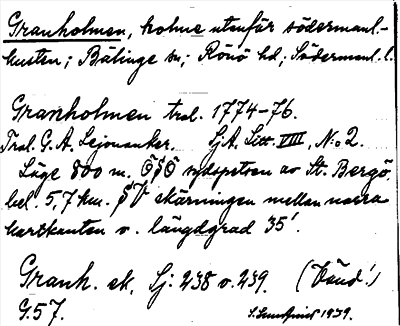 Granholmen, holme utanför södermanl.-
kusten; Bälinge sn; Rönö hd; Södermanl. l.
Granholmen tral. 1774-76.
Tral. G. A. Lejonanker. SjA. Litt. VIII, N:o 2.
Läge 800 m. ÖSÖ sydspetsen av St. Bergö.
bel. 5,7 km. SV skärningen mellan norra
kartkanten o. längdgrad 35'.
Granh. ek. Sj: 238 o. 239. (Vänd!)
G.57. 1939.